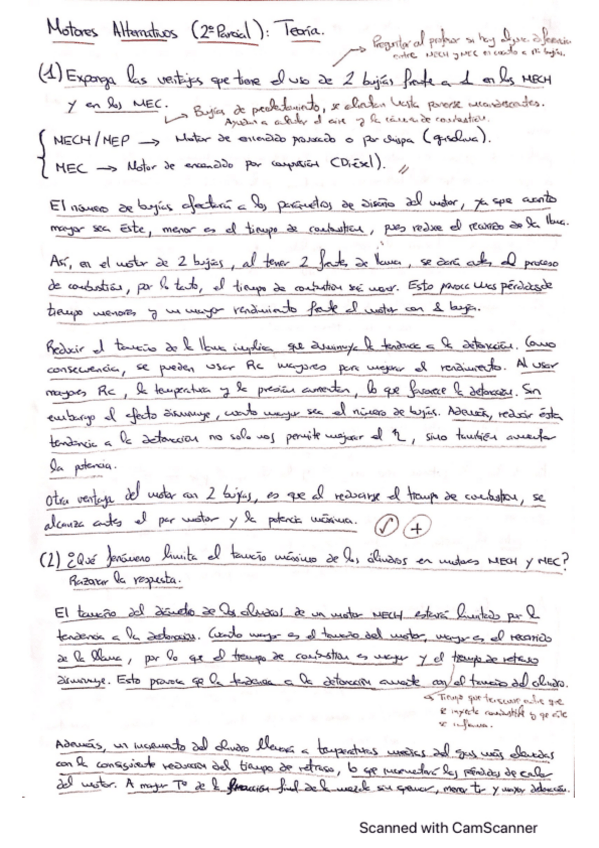 Motores Alternativos (2º Parcial): Teoría.
Preguntar al profesor si hay alguna diferencia
entre MECH y MEC en cuanto a las bujías.
(1) Exponga las ventajas que tiene el uso de 2 bujías frente a 1 en los MECH
y en los MEC.
Bujías de precalentamiento, se calientan hasta ponerse incandescentes.
Ayudan a calentar el aire y la cámara de combustión.
MECH/MEP → Motor de encendido provocado o por chispa (gasolina).
MEC → Motor de encendido por compresión (Diésel).
El número de bujías afectará a los parámetros de diseño del motor, ya que cuanto
mayor sea éste, menor es el tiempo de combustión, pues reduce el recorrido de la llama.
Así, en el motor de 2 bujías, al tener 2 frentes de llama, se dará antes el proceso
de combustión, por lo tanto, el tiempo de combustión será menor. Esto provoca unas pérdidas de
tiempo menores y un mayor rendimiento frente al motor con 1 bujía.
Reducir el tamaño de la llama implica que disminuya la tendencia a la detonación. Como
consecuencia, se pueden usar Rc mayores para mejorar el rendimiento. Al usar
mayores Rc, la temperatura y la presión aumentan, lo que favorece la detonación. Sin
embargo el efecto disminuye, cuanto mayor sea el número de bujías. Además, reducir ésta
tendencia a la detonación no solo nos permite mejorar el η, sino también aumentar
la potencia.
Otra ventaja del motor con 2 bujías, es que al reducirse el tiempo de combustión, se
alcanza antes el par motor y la potencia máxima. √ +
(2) ¿Qué fenómeno limita el tamaño máximo de los cilindros en motores MECH y MEC?
Razonar la respuesta.
El tamaño del diámetro de los cilindros de un motor MECH estará limitado por la
tendencia a la detonación. Cuanto mayor es el tamaño del motor, mayor es el recorrido
de la llama, por lo que el tiempo de combustión es mayor y el tiempo de retraso
disminuye. Esto provoca que la tendencia a la detonación aumente con el tamaño del cilindro.
Tiempo que transcurre entre que
se inyecta combustible y que éste
se inflama.
Además, un incremento del cilindro llevará a temperaturas medias del gas más elevadas
con la consiguiente reducción del tiempo de retraso, lo que incrementará las pérdidas de calor
del motor. A mayor Tª de la fracción final de la mezcla sin quemar, menor tr y mayor detonación.
Scanned with CamScanner